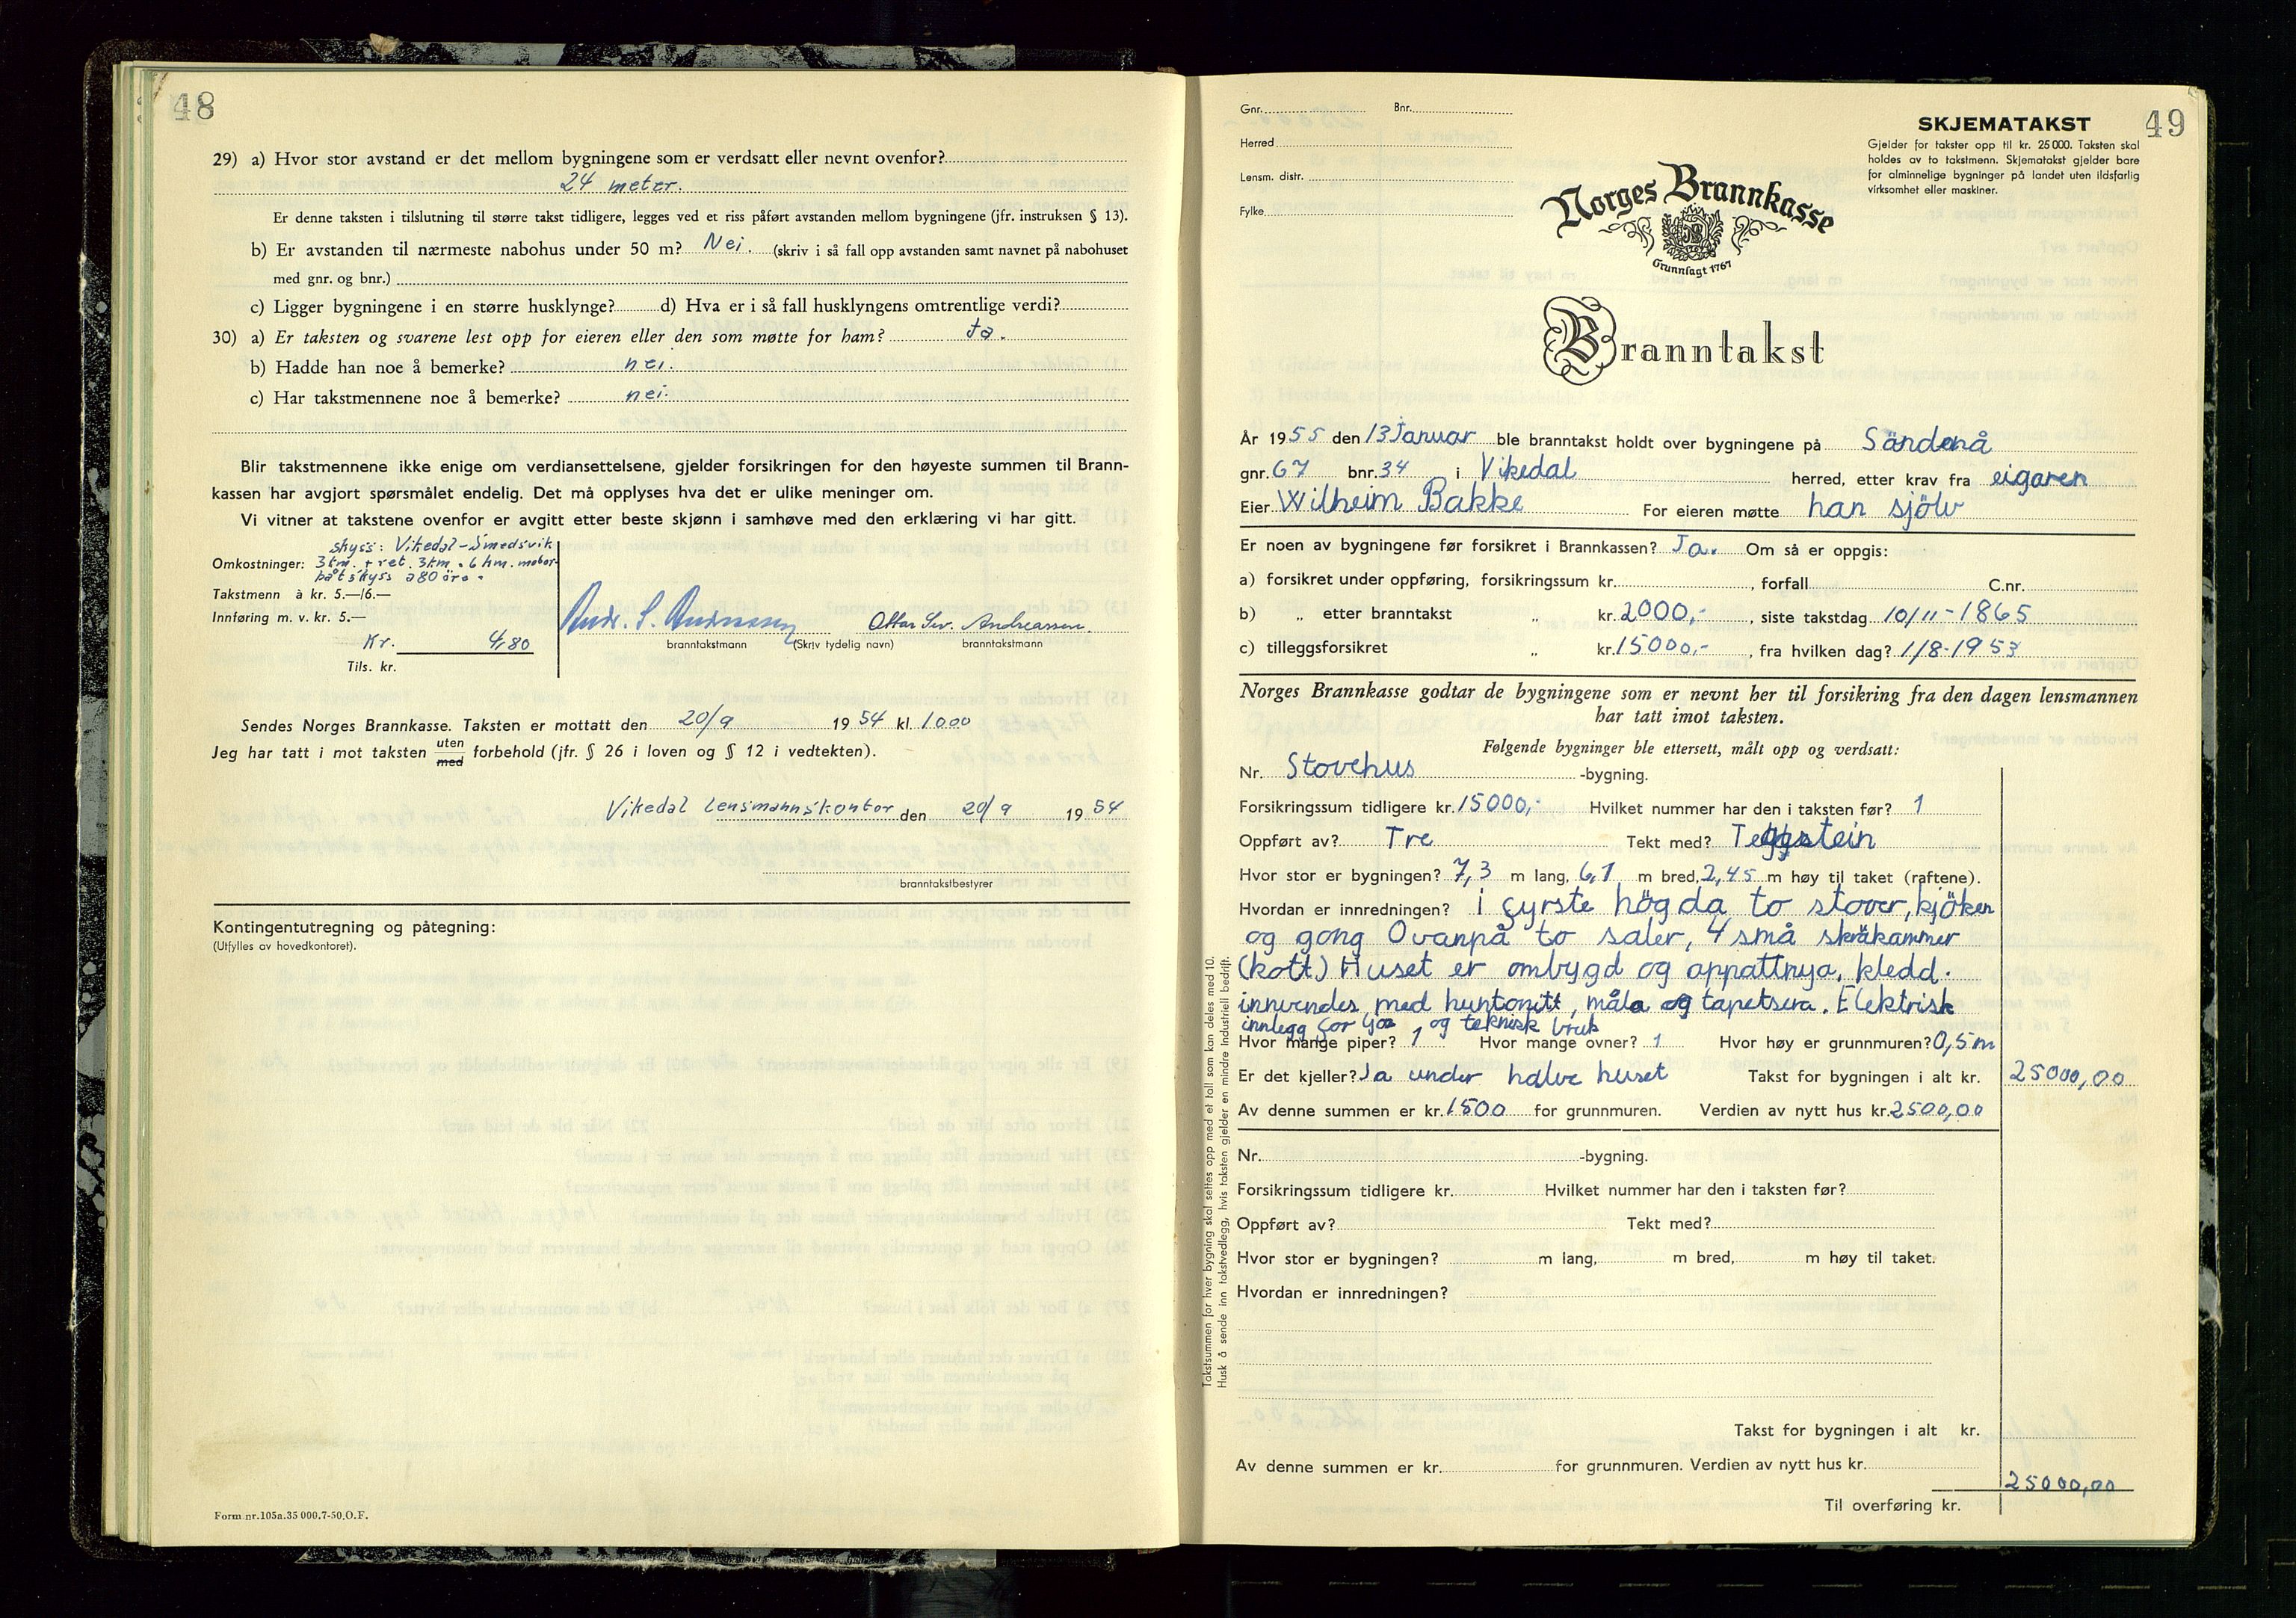 48
29) a) Hvor stor avstand er det mellom bygningene som er verdsatt eller nevnt ovenfor?
24 meter.
Er denne taksten i tilslutning til større takst tidligere, legges ved et riss påført avstanden mellom bygningene (jfr. instruksen § 13).
b) Er avstanden til nærmeste nabohus under 50 m? Nei. (skriv i så fall opp avstanden samt navnet på nabohuset
med gnr. og bnr.)
c) Ligger bygningene i en større husklynge? d) Hva er i så fall husklyngens omtrentlige verdi?
30) a) Er taksten og svarene lest opp for eieren eller den som møtte for ham? Ja.
b) Hadde han noe å bemerke? nei.
c) Har takstmennene noe å bemerke? nei.
Blir takstmennene ikke enige om verdiansettelsene, gjelder forsikringen for den høyeste summen til Brann-
kassen har avgjort spørsmålet endelig. Det må opplyses hva det er ulike meninger om.
Vi vitner at takstene ovenfor er avgitt etter beste skjønn i samhøve med den erklæring vi har gitt.
skyss: Vikedal-Smedsvik
Omkostninger: 3km. + ret. 3km = 6 km. motor-
båtskyss a 80 öre.
Takstmenn à kr. 5.—/6.—
Innføring m. v. kr. 5.—
Kr. 4,80
Tils. kr.
Andr. S. Andreassen Ottar Sev. Andreassen.
branntakstmann (Skriv tydelig navn) branntakstmann
Sendes Norges Brannkasse. Taksten er mottatt den 20/9 1954 kl. 1000
Jeg har tatt i mot taksten uten med forbehold (jfr. § 26 i loven og § 12 i vedtekten).
Vikedal Lensmannskontor den 20/9 1954
branntakstbestyrer
Kontingentutregning og påtegning:
(Utfylles av hovedkontoret).
Form nr. 105a. 35 000. 7-50. O. F.
49
Gnr. Bnr.
Herred
Lensm. distr.
Fylke
SKJEMATAKST
Gjelder for takster opp til kr. 25 000. Taksten skal
holdes av to takstmenn. Skjematakst gjelder bare
for alminnelige bygninger på landet uten ildsfarlig
virksomhet eller maskiner.
Norges Brannkasse
Grunnlagt 1767
Branntakst
År 1955 den 13 Januar ble branntakst holdt over bygningene på Sandenå
gnr. 67 bnr. 34 i Vikedal herred, etter krav fra eigaren
Eier Wilhelm Bakke For eieren møtte han sjölv
Er noen av bygningene før forsikret i Brannkassen? Ja. Om så er oppgis:
a) forsikret under oppføring, forsikringssum kr. , forfall C.nr.
b) „ etter branntakst „ kr. 2000,- , siste takstdag 10/11-1865
c) tilleggsforsikret „ kr. 15000,- , fra hvilken dag? 1/8-1953
Norges Brannkasse godtar de bygningene som er nevnt her til forsikring fra den dagen lensmannen
har tatt imot taksten.
Følgende bygninger ble ettersett, målt opp og verdsatt:
Nr. Stovehus -bygning.
Forsikringssum tidligere kr. 15000,- Hvilket nummer har den i taksten før? 1
Oppført av? Tre Tekt med? Teggstein
Hvor stor er bygningen? 7,3 m lang, 6,1 m bred, 2,45 m høy til taket (raftene).
Hvordan er innredningen? i fyrste högda to stover, kjöken
og gong Ovanpå to saler, 4 små skråkammer
(kott) Huset er ombygd og oppattnya, kledd.
innvendes med huntonitt, måla og tapetsera. Elektrisk
innlegg for ljos og teknisk bruk
Hvor mange piper? 1 Hvor mange ovner? 1 Hvor høy er grunnmuren? 0,5 m
Er det kjeller? Ja under halve huset Takst for bygningen i alt kr. 25000,00
Av denne summen er kr. 1500 for grunnmuren. Verdien av nytt hus kr. 2500,00
Nr. -bygning.
Forsikringssum tidligere kr. Hvilket nummer har den i taksten før?
Oppført av? Tekt med?
Hvor stor er bygningen? m lang, m bred, m høy til taket.
Hvordan er innredningen?
Takst for bygningen i alt kr.
Av denne summen er kr. for grunnmuren. Verdien av nytt hus kr.
25000,00
Til overføring kr.
Takstsummen for hver bygning skal settes opp med et tall som kan deles med 10.
Husk å sende inn takstvedlegg, hvis taksten gjelder en mindre industriell bedrift.